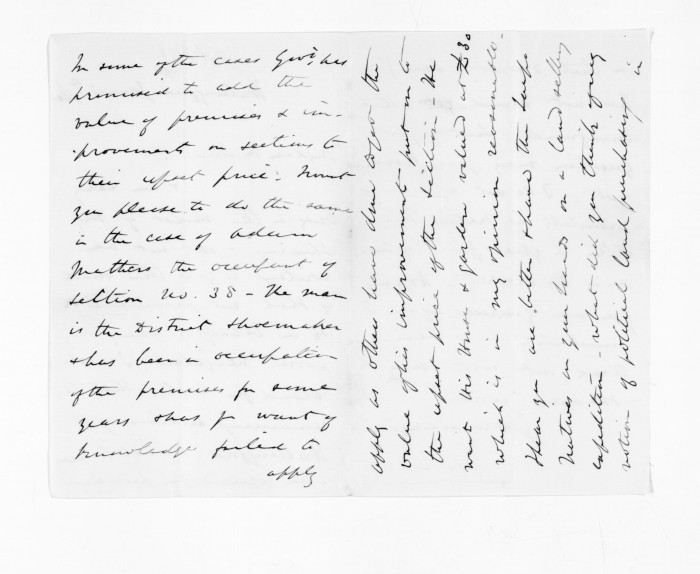 In some of the cases Govt. has
promised to add the
value of premises & im-
-provements on sections to
their upset price. Wont
you please to do the same
in the case of Adam
Matthers the occupant of
section No. 38 - The man
is the District Shoemaker
& has been in occupation
of the premises for some
years & has for want of
knowledge failed to
apply
apply as others have done to get the
value of his improvements put on to
the upset price of the section - He
want his House & garden valued at £30
which is in my opinion reasonable.
Hear you are better & have the
Natives on your hands on a land selling
expedition - what did you think of my
notion of political land purchasing in